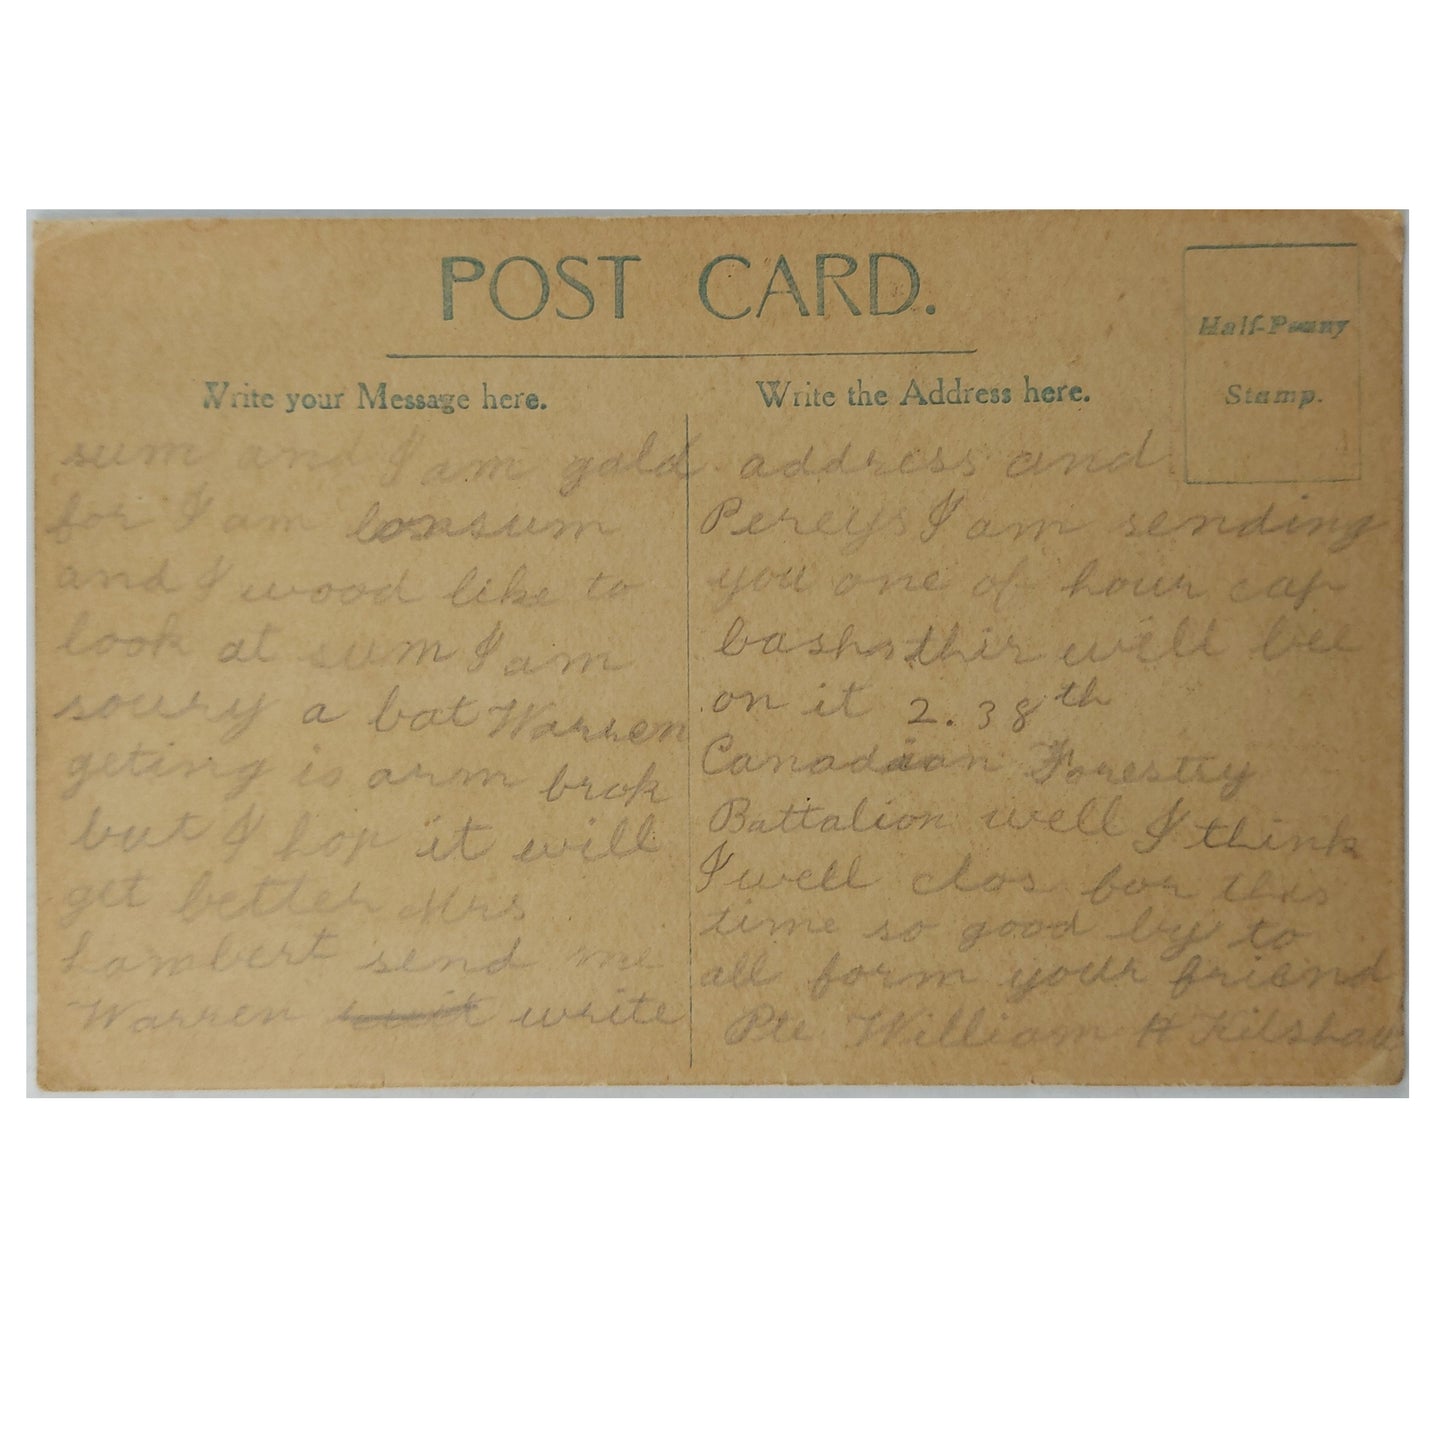 POST CARD.
Half-Penny
Stamp.
Write your Message here.
sum and I am gald
for I am lonsum
and I wood like to
look at sum I am
soury a bat Warren
geting is arm brok
but I hop it will
get better Mrs
Lambert send me
Warren write
Write the Address here.
address and
Percys I am sending
you one of hour cap
bashs thir will bee
on it 2.38th
Canadian Forestry
Battalion well I think
I well clos for this
time so good by to
all form your friend
Pte William H Kilshaw